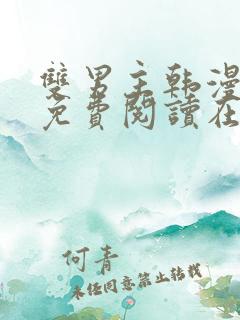 雙男主韩漫
免費閱讀在
何青
未经同意禁止转载